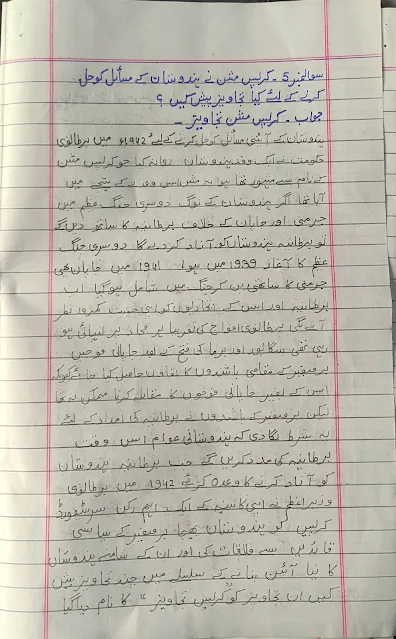 سوالنمبر 5 ۔ کرپس مشن نے ہندوستان کے مسائل کو حل
کرنے کے لئے کیا تجاویز پیش کیں ؟
جواب ۔ کرپس مشن تجاویز ۔
ہندوستان کے آئینی مسائل کو حل کرنے کے لیئے 1942ء میں برطانوی
حکومت نے ایک وفد ہندوستان روانہ کیا جو کرپس مشن
کے نام سے مشہور تھا یہ مشن اس وعدے کے نتیجے میں
آیا تھا اگر ہندوستان کے لوگ دوسری جنگ عظیم میں
جرمنی اور جاپان کے خلاف برطانیہ کا ساتھ دیں گے
تو برطانیہ ہندوستان کو آزاد کردے گا دوسری جنگ
عظیم کا آغاز 1939 میں ہوا۔ 1941 میں جاپان بھی
جرمنی کا ساتھی بن کر جنگ میں شامل ہوگیا اب
برطانیہ اور اس کے اتحادیوں کو اپنی حیثیت کمزور نظر
آنے لگی برطانوی افواج کی تقریبا ہر محاذ پر پسپائی ہو
رہی تھی سنگاپور اور برما کی فتح کے بعد جاپانی فوجیں
برصغیر کے مقامی باشندوں کا تعاون حاصل کیا جائے کیونکہ
اس کے بغیر جاپانی فوجوں کا مقابلہ کرنا ممکن نہ تھا
لیکن برصغیر کے باشندوں نے برطانیہ کی امداد کے لئے
یہ شرط لگا دی کہ ہندوستانی عوام اس وقت
برطانیہ کی مدد کریں گے جب برطانیہ ہندوستان
کو آزاد کرنے کا وعدہ کرئے 1942 میں برطانوی
وزیراعظم نے اپنی کابینہ کے ایک اہم رکن سرسٹیفورڈ
کرپس کو ہندوستان بھیجا برصغیر کے سیاسی
قائدین سے ملاقات کی اور ان کے سامنے ہندوستان
کا نیا آئین بنانے کے سلسلے میں چند تجاویز پیش
کیں ان تجاویز کو "کرپس تجاویز" کا نام دیا گیا